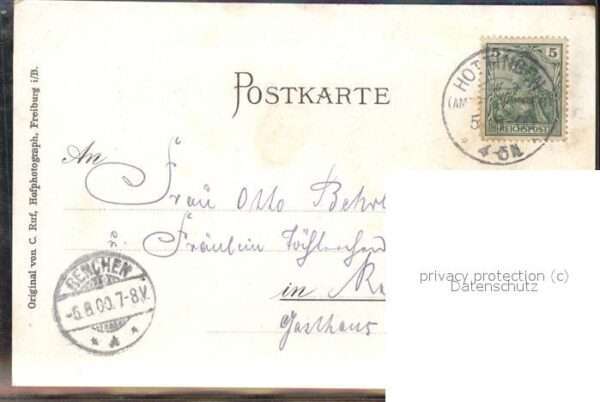 POSTKARTE
5 5
REICHSPOST
HOTTINGEN
(AM
5
4-5N
An
Frau Otto Behr
u. Fräulein Töchterchen
in Re
Gasthaus
RENCHEN
-6.8.00.7-8V.
* A *
Original von C. Ruf, Hofphotograph, Freiburg i/B.
privacy protection (c)
Datenschutz